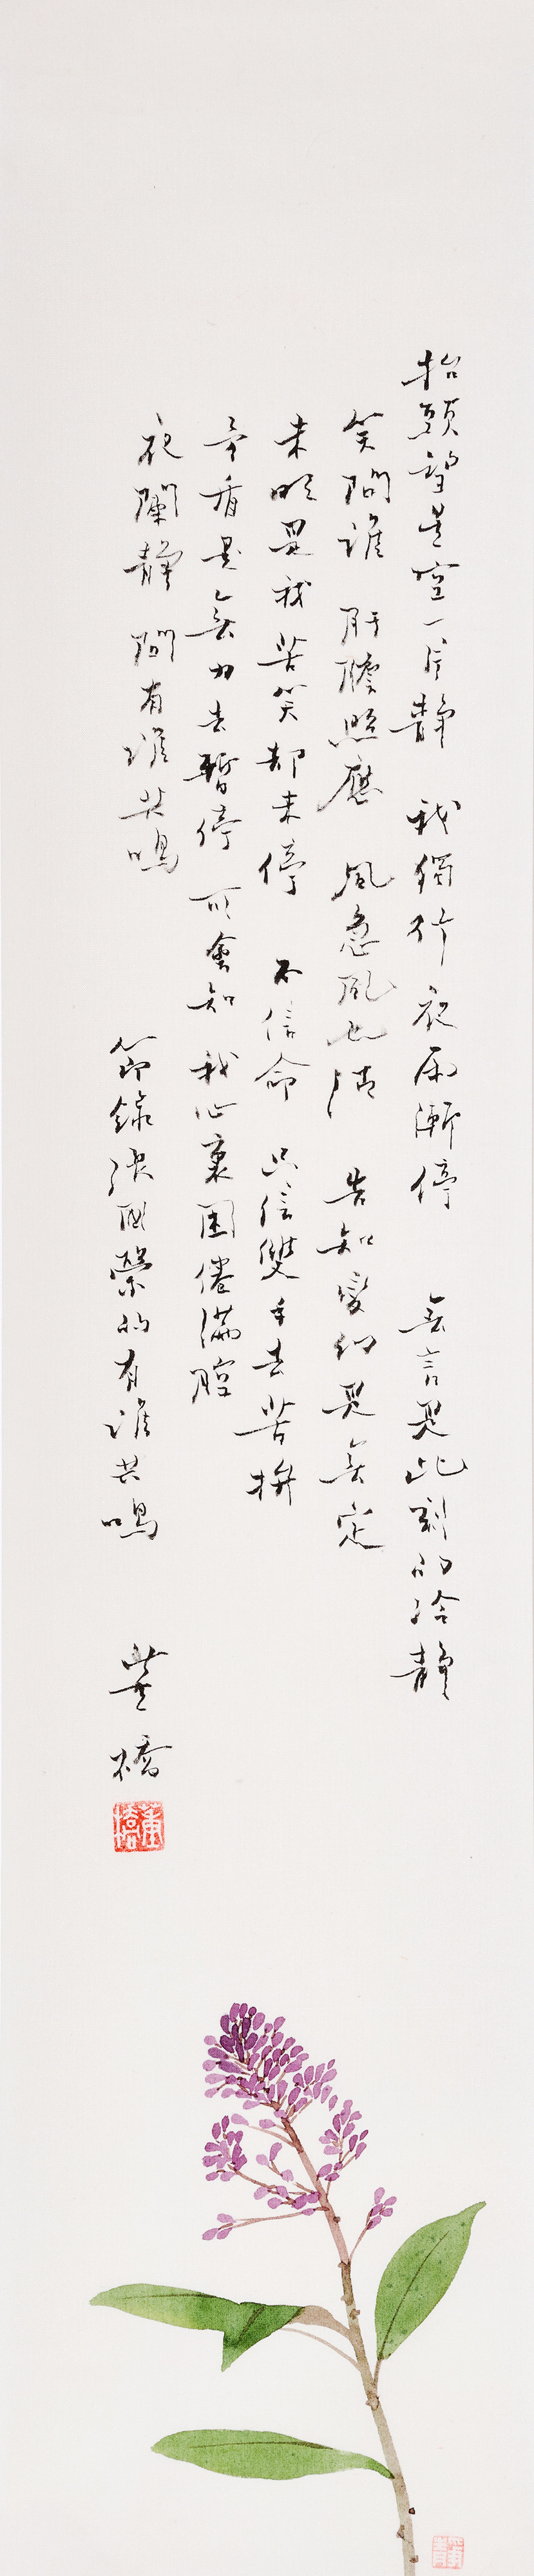 抬頭望星空一片靜 我獨行夜雨漸停 無言是此刻的冷靜
笑問誰 肝膽照應 風急風也清 告知變幻是無定
未明是我苦笑却未停 不信命 只信雙手去苦拚
矛盾是無力去暫停 可會知 我心裏困倦滿腔
夜闌靜 問有誰共鳴
節錄張國榮的有誰共鳴
董橋
董橋
靜